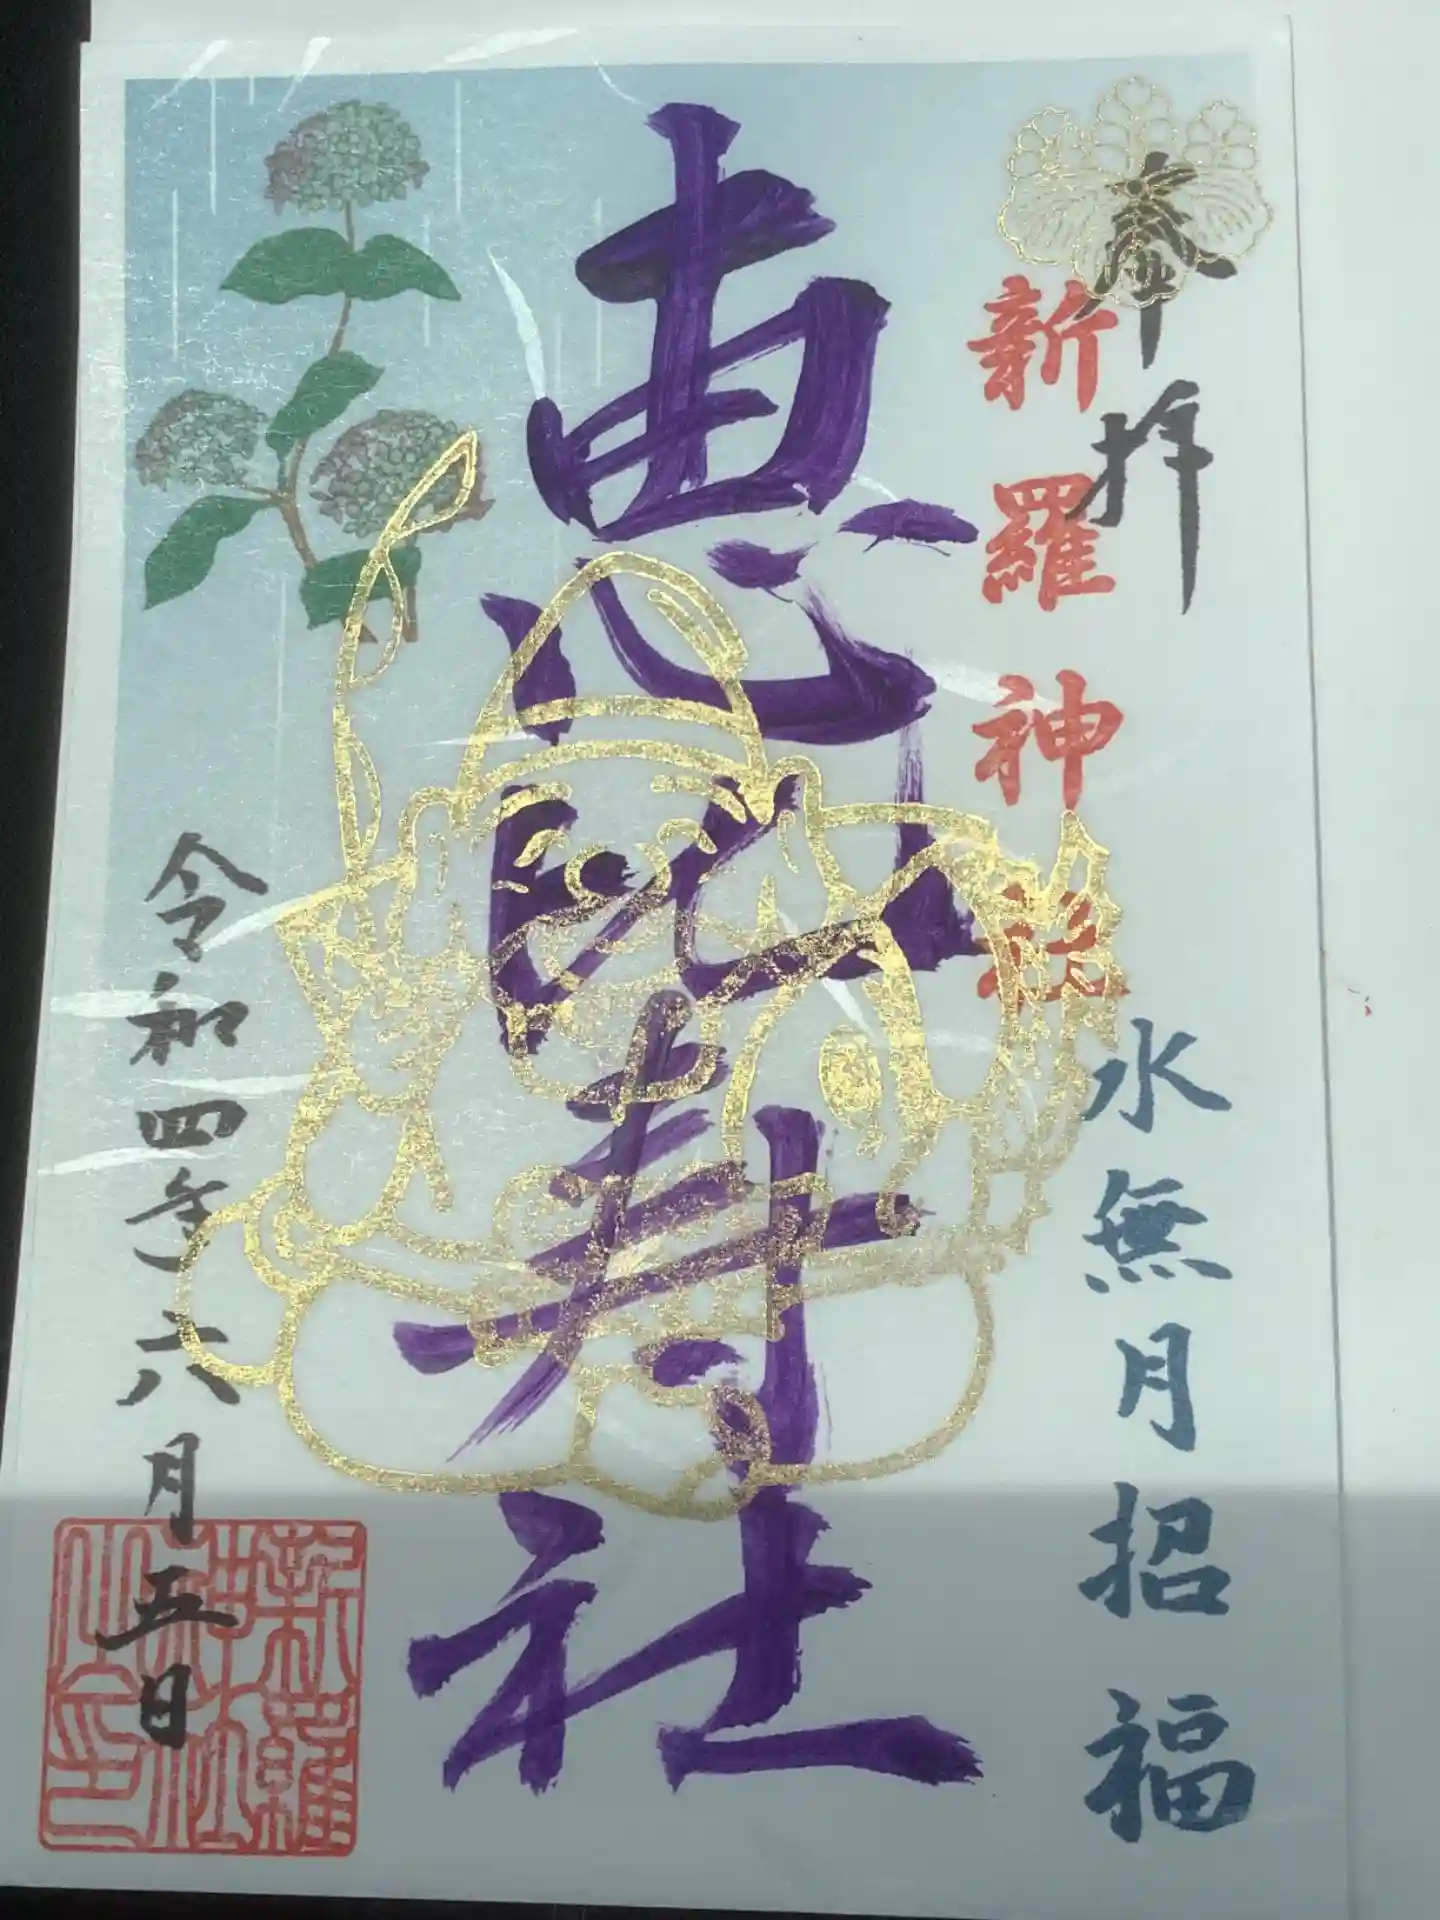 奉拝
新羅神社
水無月招福
恵比寿社
令和四年六月五日
新羅神社之印